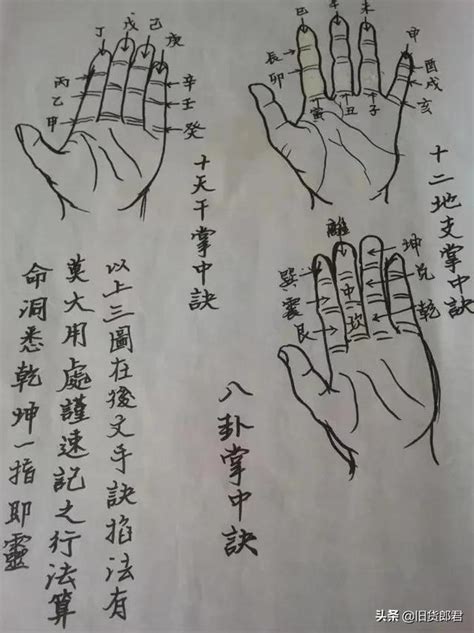 丁
戊
己
庚
丙
乙
甲
辛
壬
癸
十天干掌中訣
巳
午
未
申
辰
卯
寅
丑
子
酉
戌
亥
十二地支掌中訣
離
坤
兑
乾
巽
震
艮
中
坎
八卦掌中訣
以上三圖在後文手訣掐法有
莫大用處謹速記之行法算
命洞悉乾坤一指即靈
头条 @旧货郎君